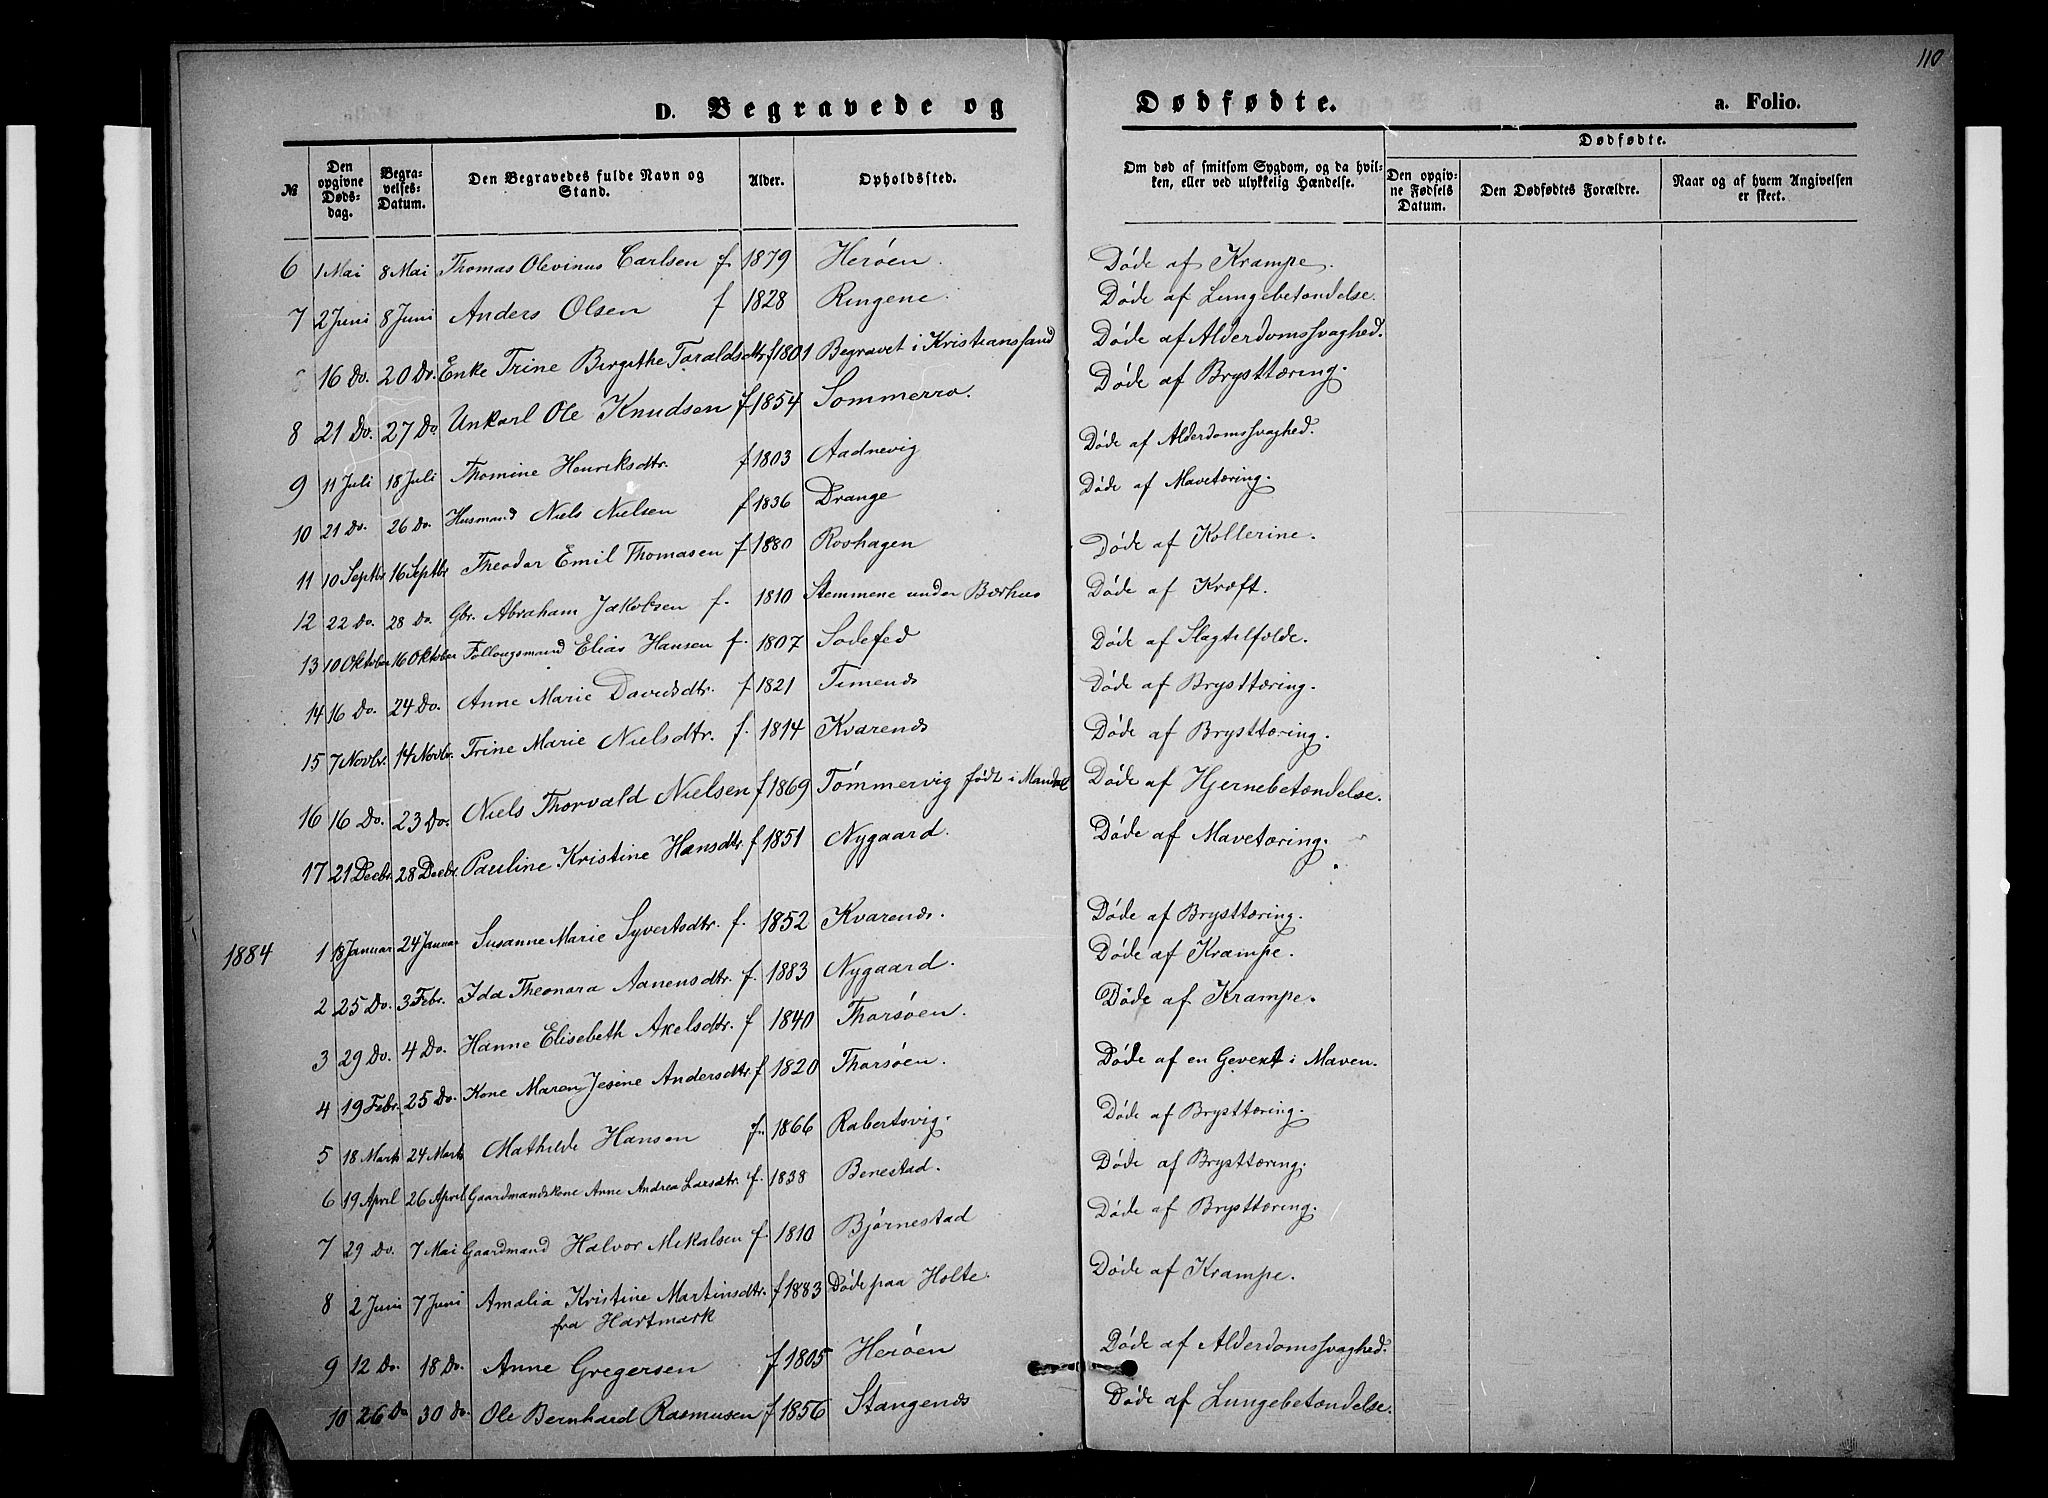 110
D. Begravede og Dødfødte. a. Folio.
№ Den opgivne Dødsdag. Begravelses-Datum. Den Begravedes fulde Navn og Stand. Alder. Opholdssted. Om død af smitsom Sygdom, og da hvilken, eller ved ulykkelig Hændelse. Dødfødte. Den opgivne Fødsels Datum. Den Dødfødtes Forældre. Naar og af hvem Angivelsen er skeet.
6 1 Mai 8 Mai Thomas Olevinus Carlsen f. 1879 Herøen. Døde af Krampe.
7 2 Juni 8 Juni Anders Olsen f 1828 Ringene. Døde af Lungebetændelse.
16 Do. 20 Do. Enke Trine Birgithe Taraldsdtr f 1801 Begravet i Kristianssand Døde af Alderdomssvaghed.
8 21 Do. 27 Do Unkarl Ole Knudsen f 1854 Sommerro. Døde af Brysttæring.
9 11 Juli 18 Juli Thomine Henriksdtr. f 1803 Aadnevig Døde af Alderdomssvaghed.
10 21 Do. 26 Do. Husmand Niels Nielsen f 1836 Drange Døde af Mavetæring.
11 10 Septbr 16 Septbr Theodor Emil Thomasen f 1880 Rovhagen Døde af Kollerine.
12 22 Do. 28 Do. Gbr. Abraham Jakobsen f. 1810 Stemmene under Borhus Døde af Kræft.
13 10 Oktober 16 Oktober Follougsmand Elias Hansen f. 1807 Sodefed Døde af Slagtilfælde.
14 16 Do. 24 Do. Anne Marie Davidsdtr. f 1821 Timends Døde af Brysttæring.
15 7 Novbr. 14 Novbr. Trine Marie Nielsdtr. f. 1814 Kvarends Døde af Brysttæring.
16 16 Do. 23 Do. Niels Thorvald Nielsen f 1869 Tømmervig født i Mandal Døde af Hjernebetændelse.
17 21 Decbr. 28 Decbr. Pauline Kristine Hansdtr. f 1851 Nygaard. Døde af Mavetæring.
1884 1 18 Januar 24 Januar Susanne Marie Syvertsdtr. f. 1852 Kvarends. Døde af Brysttæring.
2 25 Do. 3 Febr. Ida Theonora Aanensdtr. f. 1883 Nygaard. Døde af Krampe.
3 29 Do. 4 Do. Hanne Elisebeth Akelsdtr. f 1840 Thorsøen. Døde af Krampe.
4 19 Febr. 25 Do. Kone Maren Jesine Andersdtr. f 1820 Thorsøen. Døde af en Gevext i Maven.
5 18 Marts 24 Marts Mathilde Hansen f. 1866 Rabertsvig. Døde af Brysttæring.
6 19 April 26 April Gaardmandskone Anne Andrea Larsdtr. f. 1838 Benestad. Døde af Brysttæring.
7 29 Do. 7 Mai Gaardmand Halvor Mikalsen f. 1810 Bjørnestad Døde af Brysttæring.
8 2 Juni 7 Juni Amalia Kristine Martinsdtr. f 1883 Døde paa Holte. Døde af Krampe.
fra Hartmark
9 12 Do. 18 Do. Anne Gregersen f 1805 Herøen Døde af Alderdomssvaghed.
10 26 Do 30 Do. Ole Bernhard Rasmusen f 1856 Stangends Døde af Lungebetændelse.